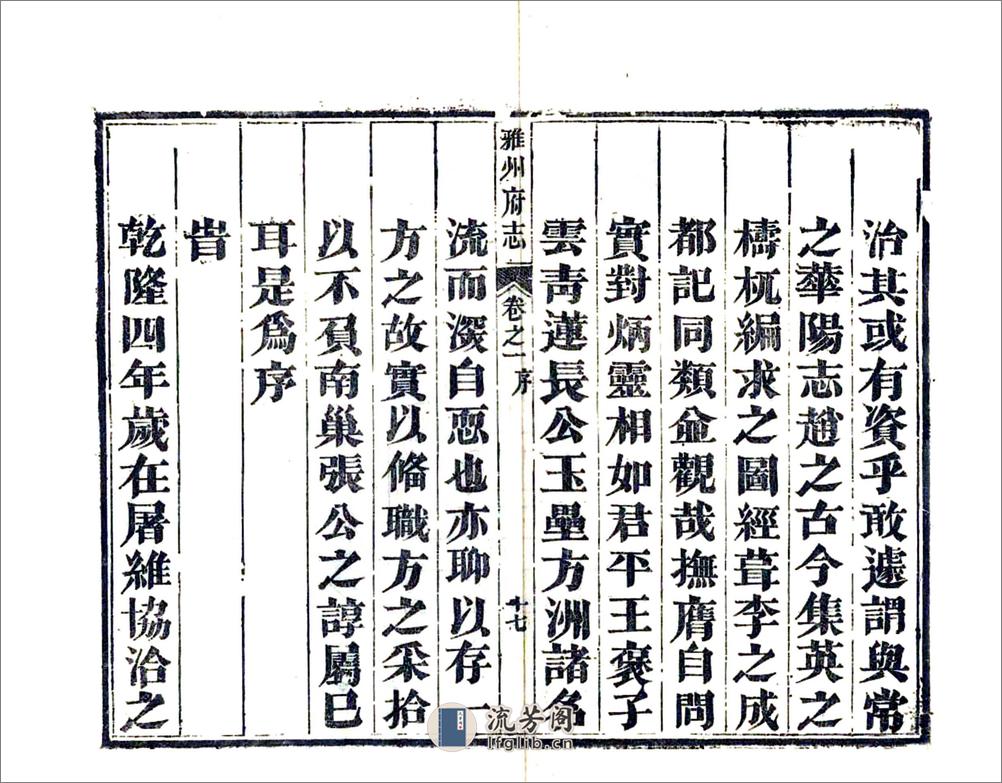 治其或有資乎敢遽謂與常
之華陽志趙之古今集英之
檮杌綱求之圖經葺李之成
都記同類並觀哉撫膺自問
實對炳靈相如君平王褒子
雲青蓮長公玉壘方洲諸名
雅州府志 卷之一 序 十七
流而深自恧也亦聊以存一
方之故實以俻職方之采拾
以不負南巢張公之諄屬已
耳是為序
旹
乾隆四年歲在屠維協洽之
流芳阁
lfglib.cn